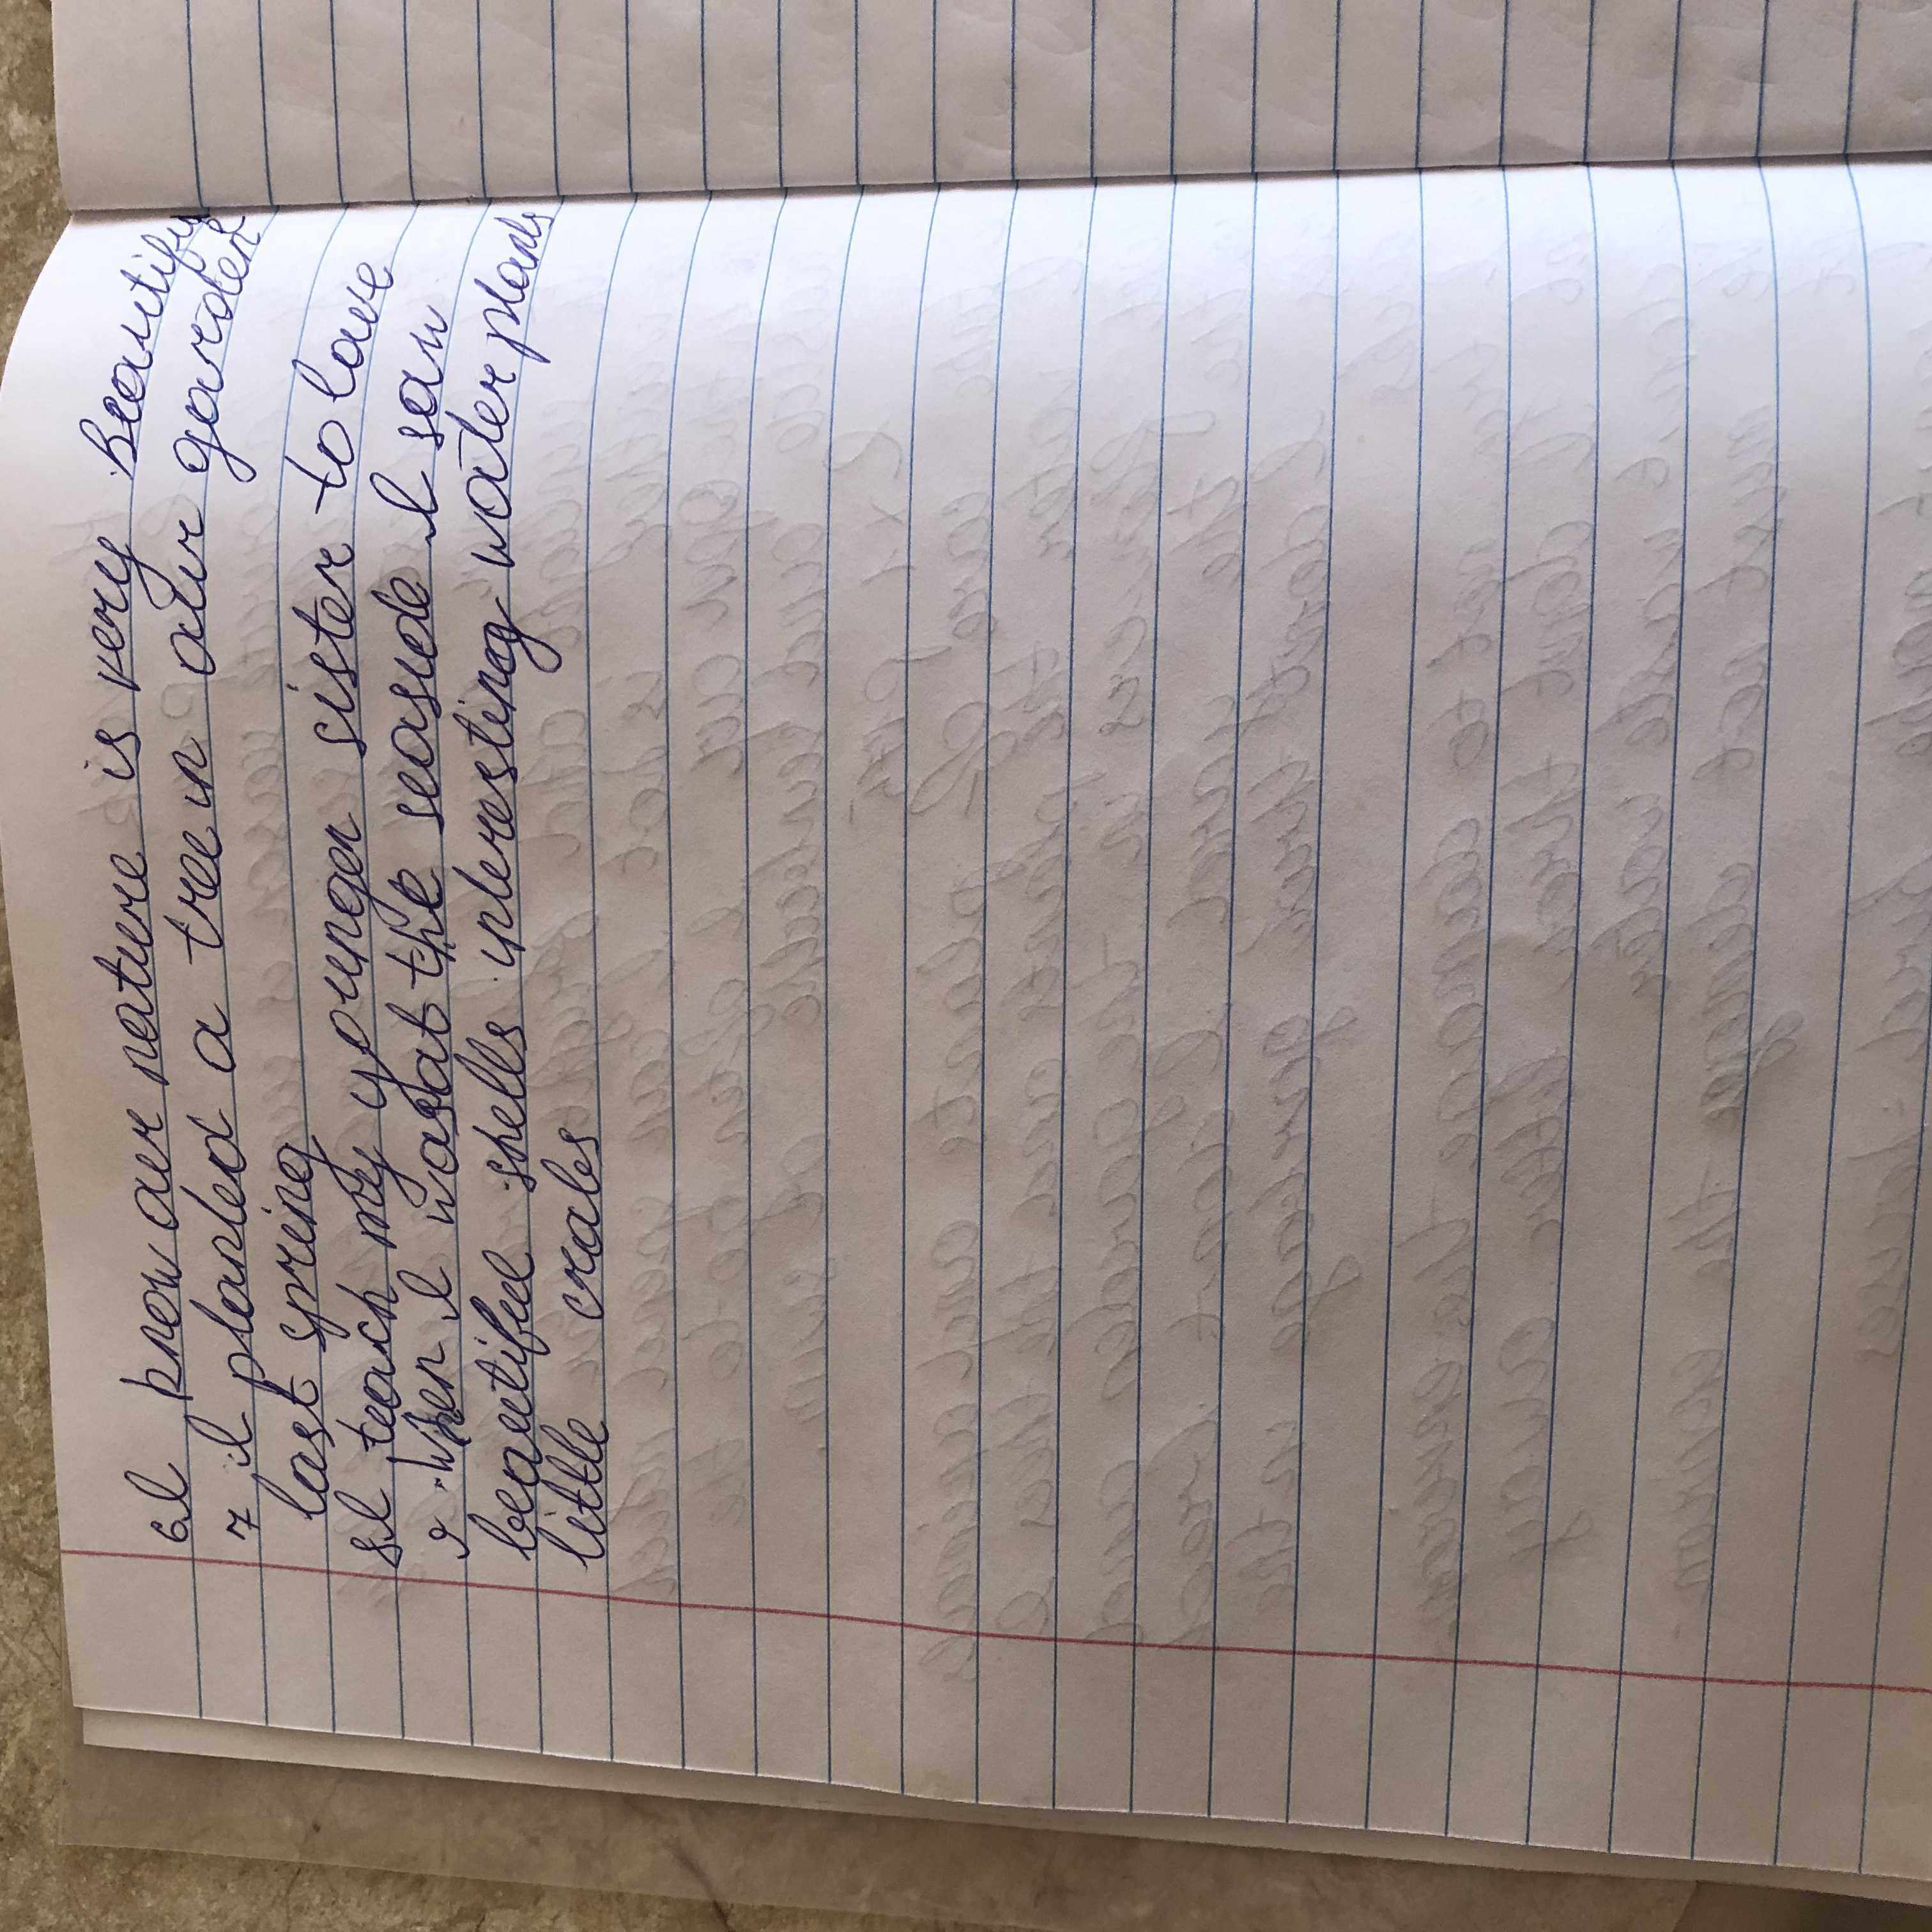 6 I know our nature is very Beautifu
7 I planted a tree in our garden
last spring
8 I teach my younger sister to love
9 When I was at the seaside I saw
beautiful shells interesting water plants
little crabs